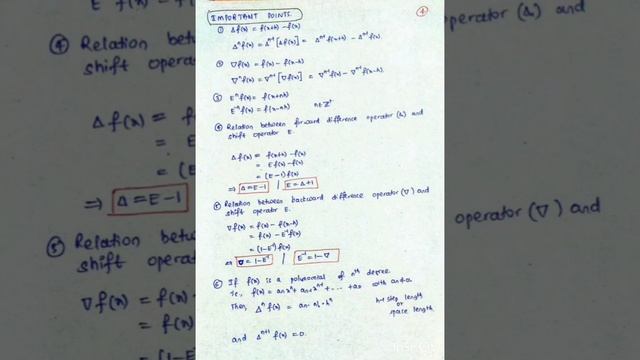 IMPORTANT POINTS
① Δf(x) = f(x+h) - f(x)
Δⁿf(x) = Δⁿ⁻¹[Δf(x)] = Δⁿ⁻¹f(x+h) - Δⁿ⁻¹f(x).
② ∇f(x) = f(x) - f(x-h)
∇ⁿf(x) = ∇ⁿ⁻¹[∇f(x)] = ∇ⁿ⁻¹f(x) - ∇ⁿ⁻¹f(x-h).
③ Eⁿf(x) = f(x+nh)
E⁻ⁿf(x) = f(x-nh) n∈Z⁺
④ Relation between forward difference operator (Δ) and
shift operator E.
Δf(x) = f(x+h) - f(x)
= Ef(x) - f(x)
= (E-1)f(x)
⇒ Δ = E-1 | E = Δ+1
⑤ Relation between backward difference operator (∇) and
shift operator E.
∇f(x) = f(x) - f(x-h)
= f(x) - E⁻¹f(x)
= (1-E⁻¹)f(x)
⇒ ∇ = 1-E⁻¹ | E⁻¹ = 1-∇
⑥ If f(x) is a polynomial of nᵗʰ degree
f(x) = aₙxⁿ + aₙ₋₁xⁿ⁻¹ + ... + a₀ with
Then, Δⁿf(x) = aₙ·n!·hⁿ
h → step length
or
space length
and Δⁿ⁺¹f(x) = 0.
④ Relation between
shift operator
Δf(x) =
=
= (E
⇒ Δ = E-1
⑤ Relation
shift operator
∇f(x) = f(x)
= f(x)
= (1-E
operator (Δ) and
operator (∇) and